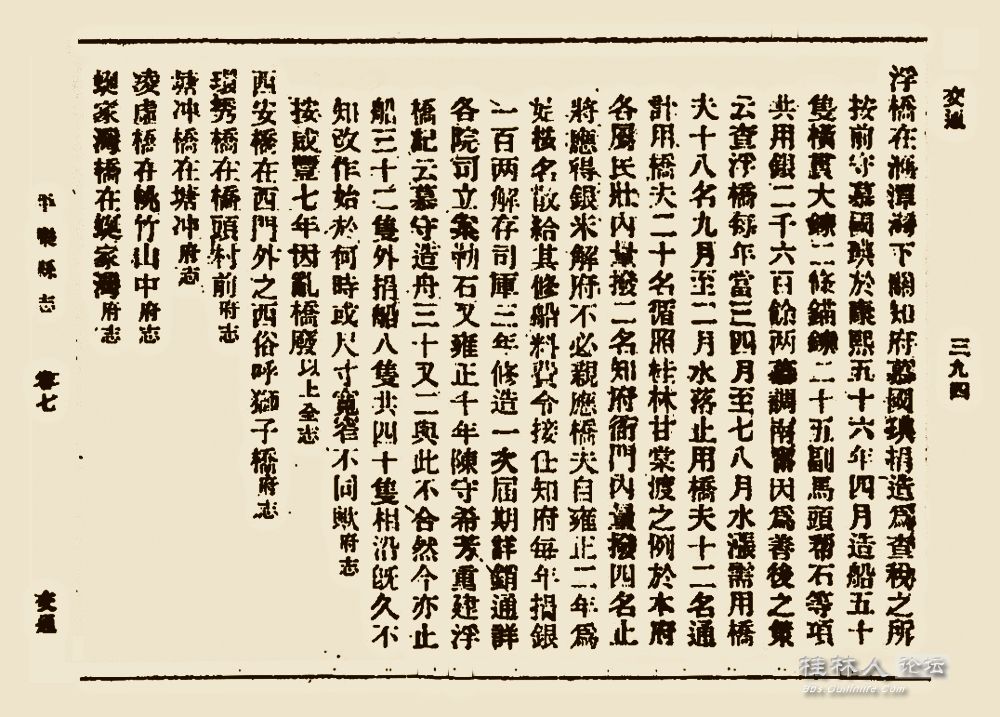 交通
三九四
浮橋在湘潭灣下關知府慕國琠捐造爲查稅之所
按前守慕國琠於康熙五十六年四月造船五十
隻橫貫大鍊二條錨鍊二十五副馬頭石等項
共用銀二千六百餘兩慕調南寧因爲善後之策
云查浮橋每年當三四月至七八月水漲需用橋
夫十八名九月至二月水落止用橋夫十二名通
計用橋夫二十名循照桂林甘棠渡之例於本府
各屬民壯內量撥二名知府衙門內量撥四名止
將應得銀米解府不必親應橋夫自雍正二年爲
始按名散給其修船料費令接任知府每年捐銀
一百两解存司庫三年修造一次屆期詳銷通詳
各院司立案勒石又雍正十年陳守希芳重建浮
橋記云慕守造舟三十又二與此不合然今亦止
船三十二隻外捐船八隻共四十隻相沿既久不
知改作始於何時或尺寸寬窄不同歟府志
按咸豐七年因亂橋廢以上全志
西安橋在西門外之西俗呼獅子橋府志
環秀橋在橋頭村前府志
塘冲橋在塘冲府志
凌虛橋在帨竹山中府志
蜒家灣橋在蜒家灣府志
平樂縣志
卷七
交通
桂林人论坛
bbs.Guilinlife.Com